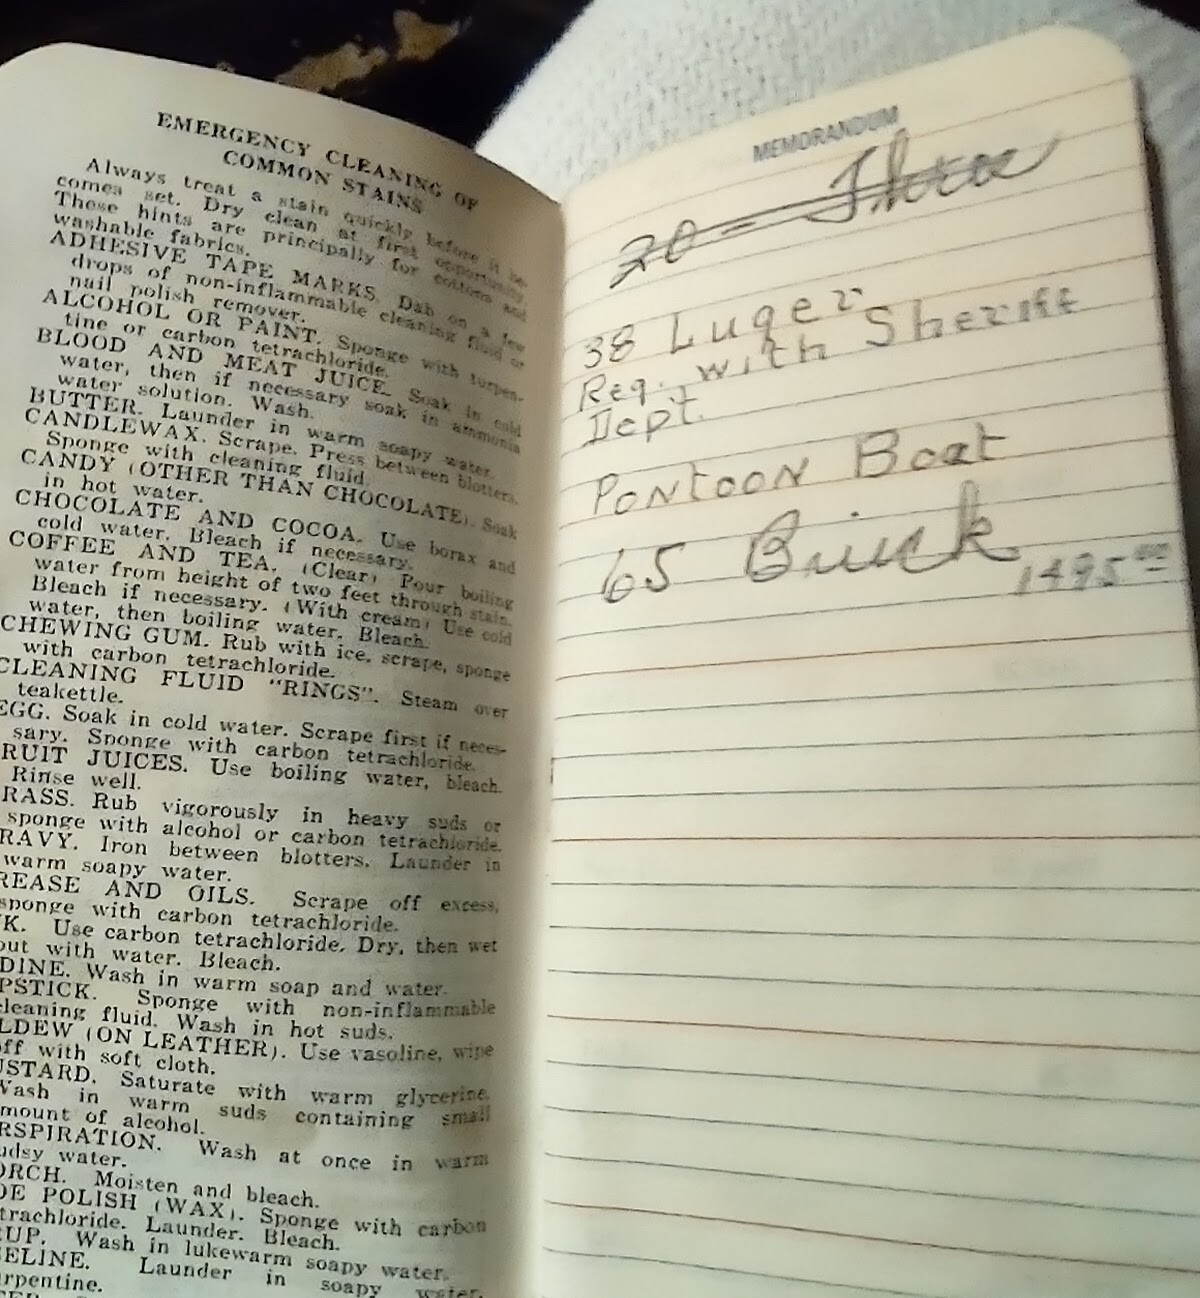 EMERGENCY CLEANING OF
COMMON STAINS
Always treat a stain quickly before it be-
comes set. Dry clean at first opportunity.
These hints are principally for cottons and
washable fabrics.
ADHESIVE TAPE MARKS. Dab on a few
drops of non-inflammable cleaning fluid or
nail polish remover.
ALCOHOL OR PAINT. Sponge with turpen-
tine or carbon tetrachloride.
BLOOD AND MEAT JUICE. Soak in cold
water, then if necessary soak in ammonia
water solution. Wash.
BUTTER. Launder in warm soapy water.
CANDLEWAX. Scrape. Press between blotters.
Sponge with cleaning fluid.
CANDY (OTHER THAN CHOCOLATE). Soak
in hot water.
CHOCOLATE AND COCOA. Use borax and
cold water. Bleach if necessary.
COFFEE AND TEA. (Clear) Pour boiling
water from height of two feet through stain.
Bleach if necessary. (With cream) Use cold
water, then boiling water. Bleach.
CHEWING GUM. Rub with ice, scrape, sponge
with carbon tetrachloride.
CLEANING FLUID "RINGS". Steam over
teakettle.
EGG. Soak in cold water. Scrape first if neces-
sary. Sponge with carbon tetrachloride.
RUIT JUICES. Use boiling water, bleach.
Rinse well.
RASS. Rub vigorously in heavy suds or
sponge with alcohol or carbon tetrachloride.
RAVY. Iron between blotters. Launder in
warm soapy water.
REASE AND OILS. Scrape off excess,
sponge with carbon tetrachloride.
K. Use carbon tetrachloride. Dry, then wet
out with water. Bleach.
DINE. Wash in warm soap and water.
PSTICK. Sponge with non-inflammable
cleaning fluid. Wash in hot suds.
LDEW (ON LEATHER). Use vasoline, wipe
off with soft cloth.
USTARD. Saturate with warm glycerine.
Wash in warm suds containing small
mount of alcohol.
RSPIRATION. Wash at once in warm
udsy water.
ORCH. Moisten and bleach.
OE POLISH (WAX). Sponge with carbon
trachloride. Launder. Bleach.
UP. Wash in lukewarm soapy water.
SELINE. Launder in soapy water,
rpentine.
MEMORANDUM
20 -
38 Luger
Reg. with Sheriff
Dept.
Pontoon Boat
65 Buick
1495 00